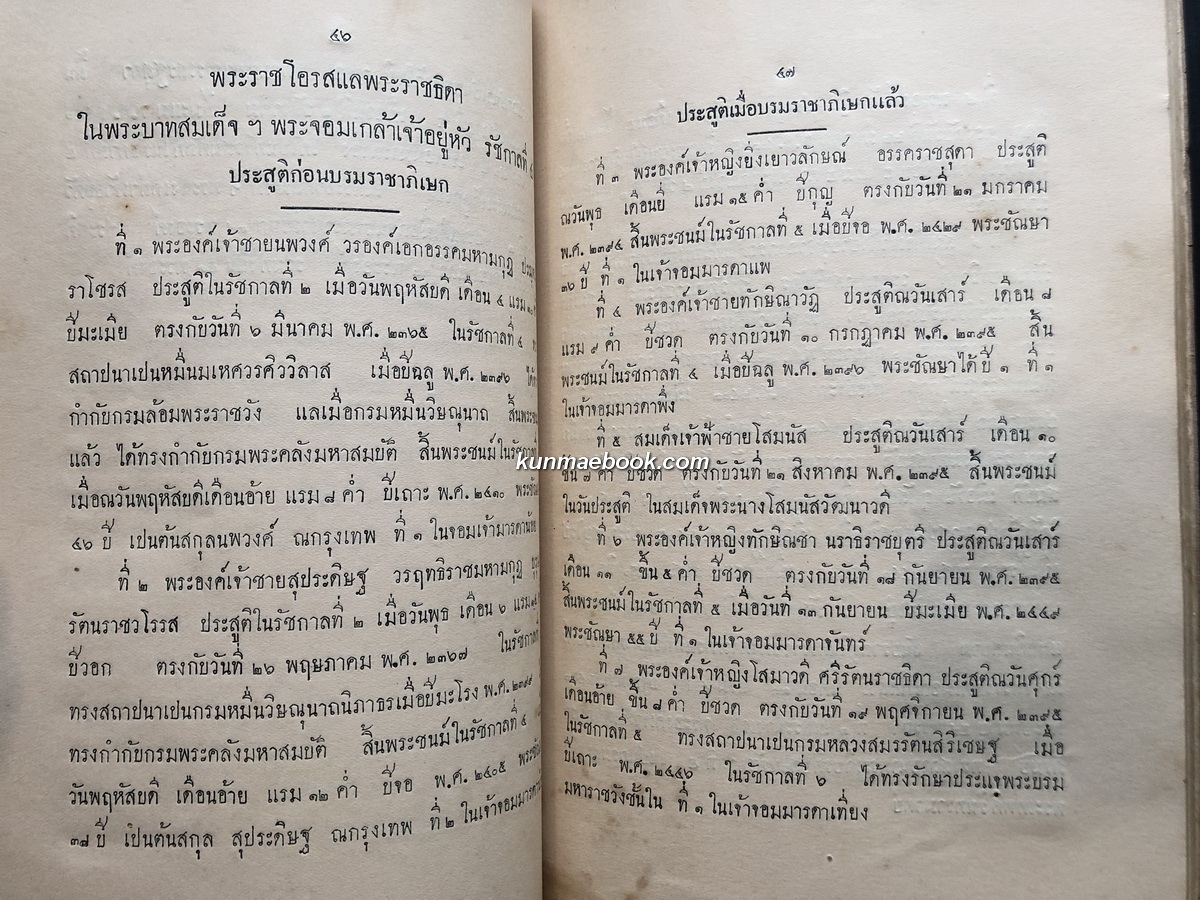 ๔๖
พระราชโอรสแลพระราชธิดา
ในพระบาทสมเด็จ ฯ พระจอมเกล้าเจ้าอยู่หัว รัชกาลที่
ประสูติก่อนบรมราชาภิเษก
ที่ ๑ พระองค์เจ้าชายนพวงศ์ วรองค์เอกอรรคมหามกุฎ
ราโชรส ประสูติในรัชกาลที่ ๒ เมื่อวันพฤหัสบดี เดือน ๔ แรม
ปีมะเมีย ตรงกับวันที่ ๖ มีนาคม พ.ศ. ๒๓๖๕ ในรัชกาลที่ ๔
สถาปนาเปนหมื่นมเหศวรศิววิลาส เมื่อปีฉลู พ.ศ. ๒๓๙๖
กำกับกรมล้อมพระราชวัง แลเมื่อกรมหมื่นวิษณุนาถ
แล้ว ได้ทรงกำกับกรมพระคลังมหาสมบัติ สิ้นพระชนม์ใน
เมื่อณวันพฤหัสบดีเดือนอ้าย แรม ๘ ค่ำ ปีเถาะ พ.ศ. ๒๔๑๐
๔๖ ปี เปนต้นสกุลนพวงศ์ ณกรุงเทพ ที่ ๑ ในจอมเจ้ามารดาน้อย
ที่ ๒ พระองค์เจ้าชายสุประดิษฐ วรฤทธิราชมหามกุฎ
รัตนราชวโรรส ประสูติในรัชกาลที่ ๒ เมื่อวันพุธ เดือน ๖ แรม
ปีวอก ตรงกับวันที่ ๒๖ พฤษภาคม พ.ศ. ๒๓๖๗ ในรัชกาลที่
ทรงสถาปนาเปนกรมหมื่นวิษณุนาถนิภาธรเมื่อปีมะโรง พ.ศ. ๒๓๙๙
ทรงกำกับกรมพระคลังมหาสมบัติ สิ้นพระชนม์ในรัชกาลที่ ๔
วันพฤหัสบดี เดือนอ้าย แรม ๑๒ ค่ำ ปีจอ พ.ศ. ๒๔๐๕
๓๘ ปี เป็นต้นสกุล สุประดิษฐ ณกรุงเทพ ที่ ๒ ในเจ้าจอมมารดา
๔๗
ประสูติเมื่อบรมราชาภิเษกแล้ว
ที่ ๓ พระองค์เจ้าหญิงยิ่งเยาวลักษณ์ อรรคราชสุดา ประสูติ
ณวันพุธ เดือนยี่ แรม ๑๕ ค่ำ ปีกุญ ตรงกับวันที่ ๒๑ มกราคม
พ.ศ. ๒๓๙๔ สิ้นพระชนม์ในรัชกาลที่ ๕ เมื่อปีจอ พ.ศ. ๒๔๒๙ พระชัณษา
๓๖ ปี ที่ ๑ ในเจ้าจอมมารดาแพ
ที่ ๔ พระองค์เจ้าชายทักษิณาวัฎ ประสูติณวันเสาร์ เดือน ๘
แรม ๙ ค่ำ ปีชวด ตรงกับวันที่ ๑๐ กรกฎาคม พ.ศ. ๒๓๙๕ สิ้น
พระชนม์ในรัชกาลที่ ๔ เมื่อปีฉลู พ.ศ. ๒๓๙๖ พระชัณษาได้ ปี ๑ ที่ ๑
ในเจ้าจอมมารดาพึ่ง
ที่ ๕ สมเด็จเจ้าฟ้าชายโสมนัส ประสูติณวันเสาร์ เดือน ๑๐
ขึ้น ๗ ค่ำ ปีชวด ตรงกับวันที่ ๒๑ สิงหาคม พ.ศ. ๒๓๙๕ สิ้นพระชนม์
kunmaebook.com
ในวันประสูติ ในสมเด็จพระนางโสมนัสวัฒนาวดี
ที่ ๖ พระองค์เจ้าหญิงทักษิณชา นราธิราชบุตรี ประสูติณวันเสาร์
เดือน ๑๑ ขึ้น ๕ ค่ำ ปีชวด ตรงกับวันที่ ๑๘ กันยายน พ.ศ. ๒๓๙๕
สิ้นพระชนม์ในรัชกาลที่ ๕ เมื่อวันที่ ๑๓ กันยายน ปีมะเมีย พ.ศ. ๒๔๔๙
พระชัณษา ๕๕ ปี ที่ ๑ ในเจ้าจอมมารดาจันทร์
ที่ ๗ พระองค์เจ้าหญิงโสมาวดี ศรีรัตนราชธิดา ประสูติณวันศุกร์
เดือนอ้าย ขึ้น ๘ ค่ำ ปีชวด ตรงกับวันที่ ๑๙ พฤศจิกายน พ.ศ. ๒๓๙๕
ในรัชกาลที่ ๕ ทรงสถาปนาเปนกรมหลวงสมรรัตนสิริเชษฐ เมื่อ
ปีเถาะ พ.ศ. ๒๔๔๖ ในรัชกาลที่ ๖ ได้ทรงรักษาประแจพระบรม
มหาราชวังชั้นใน ที่ ๑ ในเจ้าจอมมารดาเที่ยง